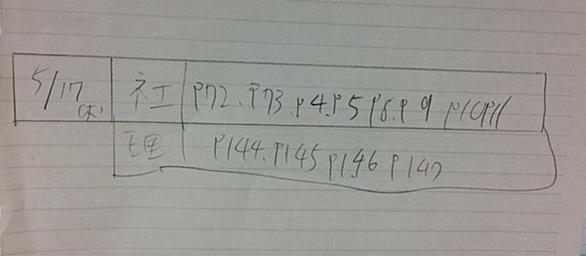 5/17(木) 社 P72.P73.P4.P5 P8.P9 P10P11
理 P144.P145 P146 P147